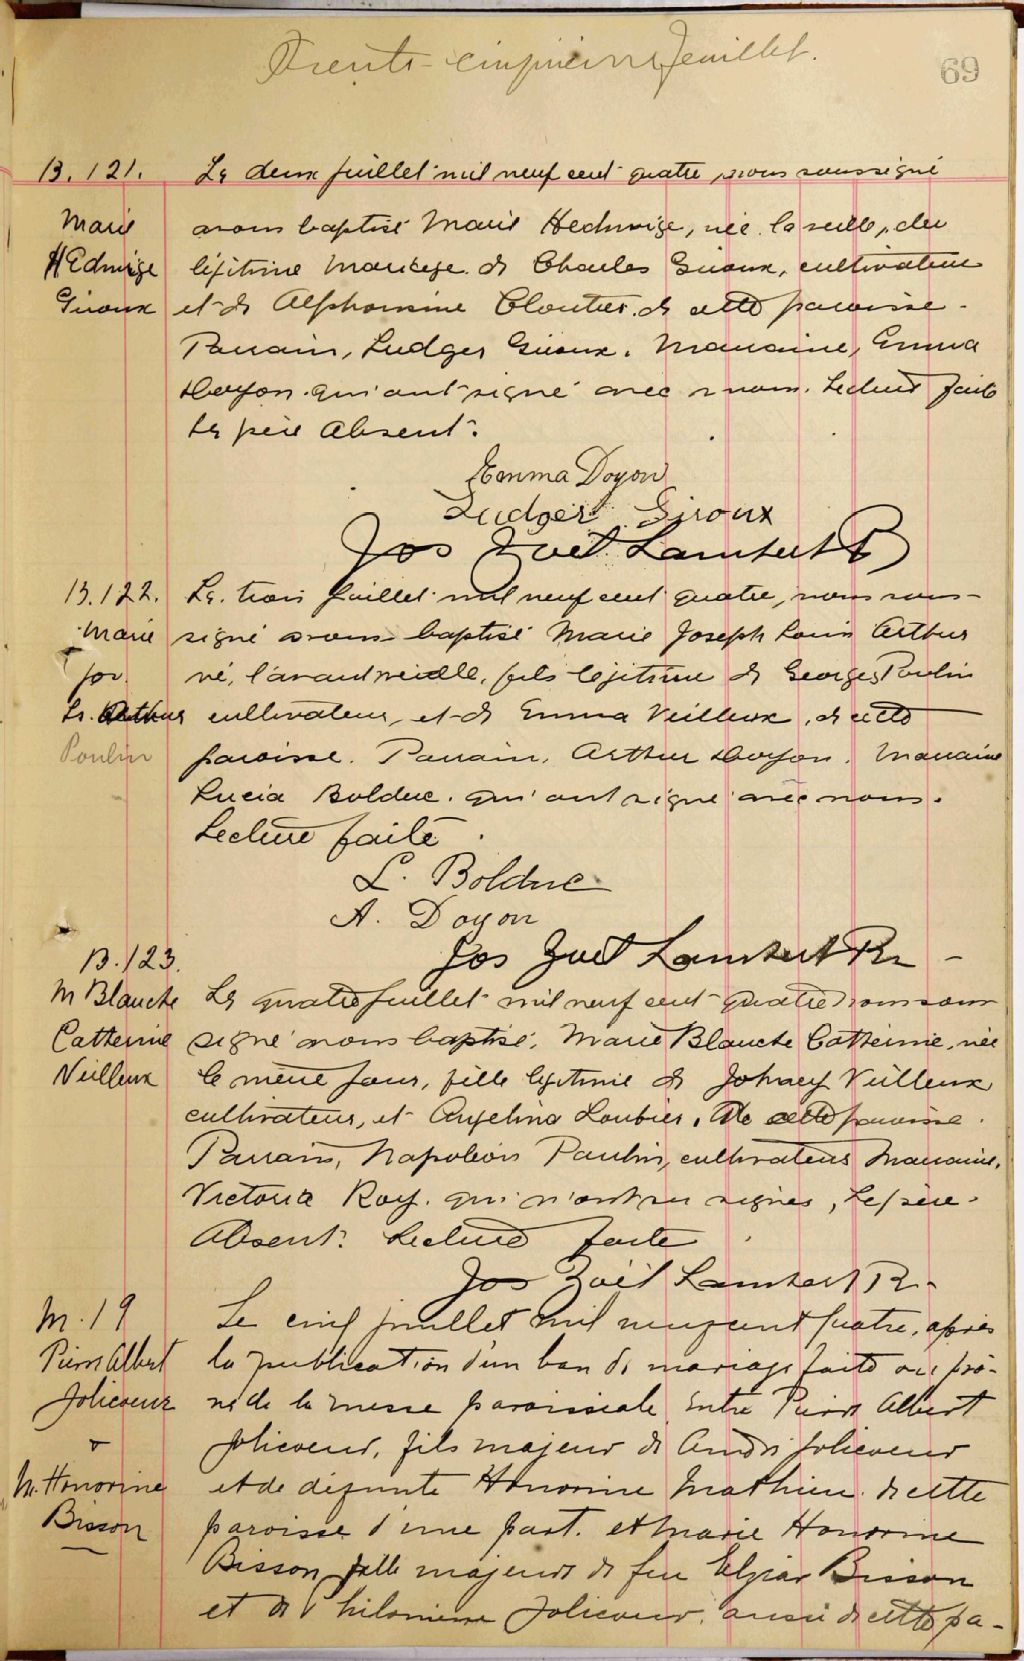 Trente-cinquième feuillet.
69
B. 121.
Marie
HEdwige
Giroux
Le deux juillet mil neuf cent quatre, nous soussigné
avons baptisé Marie Hedwige, née la veille, du
légitime mariage de Charles Giroux, cultivateur
et de Alphonsine Cloutier de cette paroisse.
Parrain, Ludger Giroux. Marraine, Emma
Doyon. qui ont signé avec nous. Lecture faite
Le père Absent.
Emma Doyon
Ludger Giroux
Jos Zoël Lambert
B. 122.
Marie
Jos.
Ls. Arthur
Poulin
Le trois juillet mil neuf cent quatre, nous sous-
signé avons baptisé Marie Joseph Louis Arthur
né, l'avant veille, fils légitime de Georges Poulin
cultivateur, et de Emma Veilleux, de cette
paroisse. Parrain, Arthur Doyon. Marraine
Lucia Bolduc. qui ont signé avec nous.
Lecture faite.
L. Bolduc
A. Doyon
Jos Zoël Lambert Ptr
B. 123.
M Blanche
Catherine
Veilleux
Le quatre juillet mil neuf cent quatre nous sous
signé avons baptisé, Marie Blanche Catherine, née
le même jour, fille légitime de Johney Veilleux
cultivateur, et Angelina Loubier, de cette paroisse.
Parrain, Napoléon Poulin, cultivateur Marraine,
Victoria Roy. qui n'ont su signer, Le père
Absent. Lecture faite
Jos Zoël Lambert Ptr
M. 19
Pierre Albert
Jolicoeur
&
M. Honorine
Bisson
Le cinq juillet mil neuf cent quatre, après
la publication d'un ban de mariage faite au prô-
ne de la messe paroissiale entre Pierre Albert
Jolicoeur, fils majeur de André Jolicoeur
et de défunte Honorine Mathieu de cette
paroisse d'une part. et Marie Honorine
Bisson fille majeure de feu Elzéar Bisson
et de Philomène Jolicoeur, aussi de cette pa-